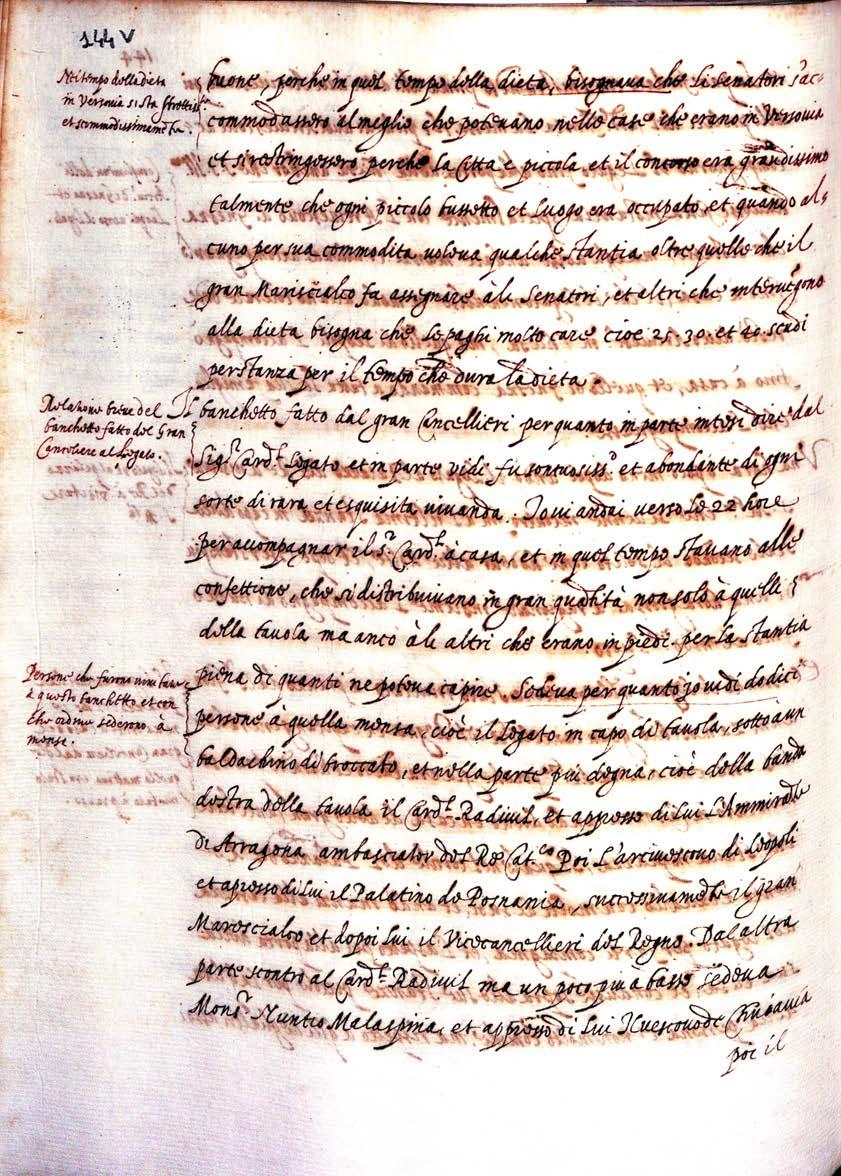 144 V
Nel tempo della dieta
in Versovia si sta strettiss.te
et scommodissimamente.
buone, perche in quel tempo della dieta, bisognava che li senatori s'ac-
commodassero al meglio che potevano nelle case che erano in Versovia
et si restringessero perche la Citta e piccola et il concorso era grandissimo
talmente che ogni piccolo bussetto et luogo era occupato, et quando al-
cuno per sua commodita voleva qualche stantia oltre quelle che il
gran Marisciàlco fa assegnare à li Senatori, et altri che intervegono
alla dieta bisogna che le paghi molto care cioe 25. 30. et 40. scudi
per stanza per il tempo che dura la dieta.
Relatione breve del
banchetto fatto dal Gran
Cancelliere al Legato.
Il banchetto fatto dal gran Cancellieri per quanto in parte intesi dire dal
Sig.r Card.l Legato et in parte vidi fu sontuosiss.o et abondante di ogni
sorte di rara et esquisita vivanda. Io vi andai verso le 22 hore
per accompagnar il S.r Card.l à casa, et in quel tempo stavano alle
confettione, che si distribuivano in gran quātità non solo à quelli
della tavola ma anco à li altri che erano in piedi per la stantia
Persone che furono invitate
à questo banchetto et con
che ordine sederono à
mensa.
piena di quanti ne poteva capire. Sedeva per quanto io vidi dodici
persone à quella mensa, cioè il Legato in capo di tavola, sotto a un
baldachino di broccato, et nella parte piu degna, cioè della banda
destra della tavola il Card.l Radivil, et appresso di lui l'Ammirāte
di Arragona ambasciator del Re Cat.co Poi l'arcivescovo di Leopoli
et apresso di lui il Palatino de Posnania, successivamēte il gran
Marescialco et dopoi lui il Vicecancellieri del Regno. Dal altra
parte scontro al Card.l Radivil ma un poco più à basso sedeva
Mons.r Nuntio Malaspina, et appresso di lui il vescovo de Cuiavia
poi il